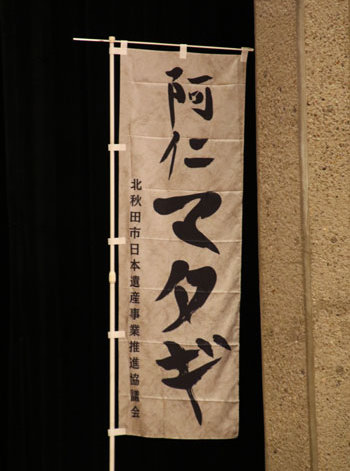 阿仁マタギ
北秋田市日本遺産事業推進協議会